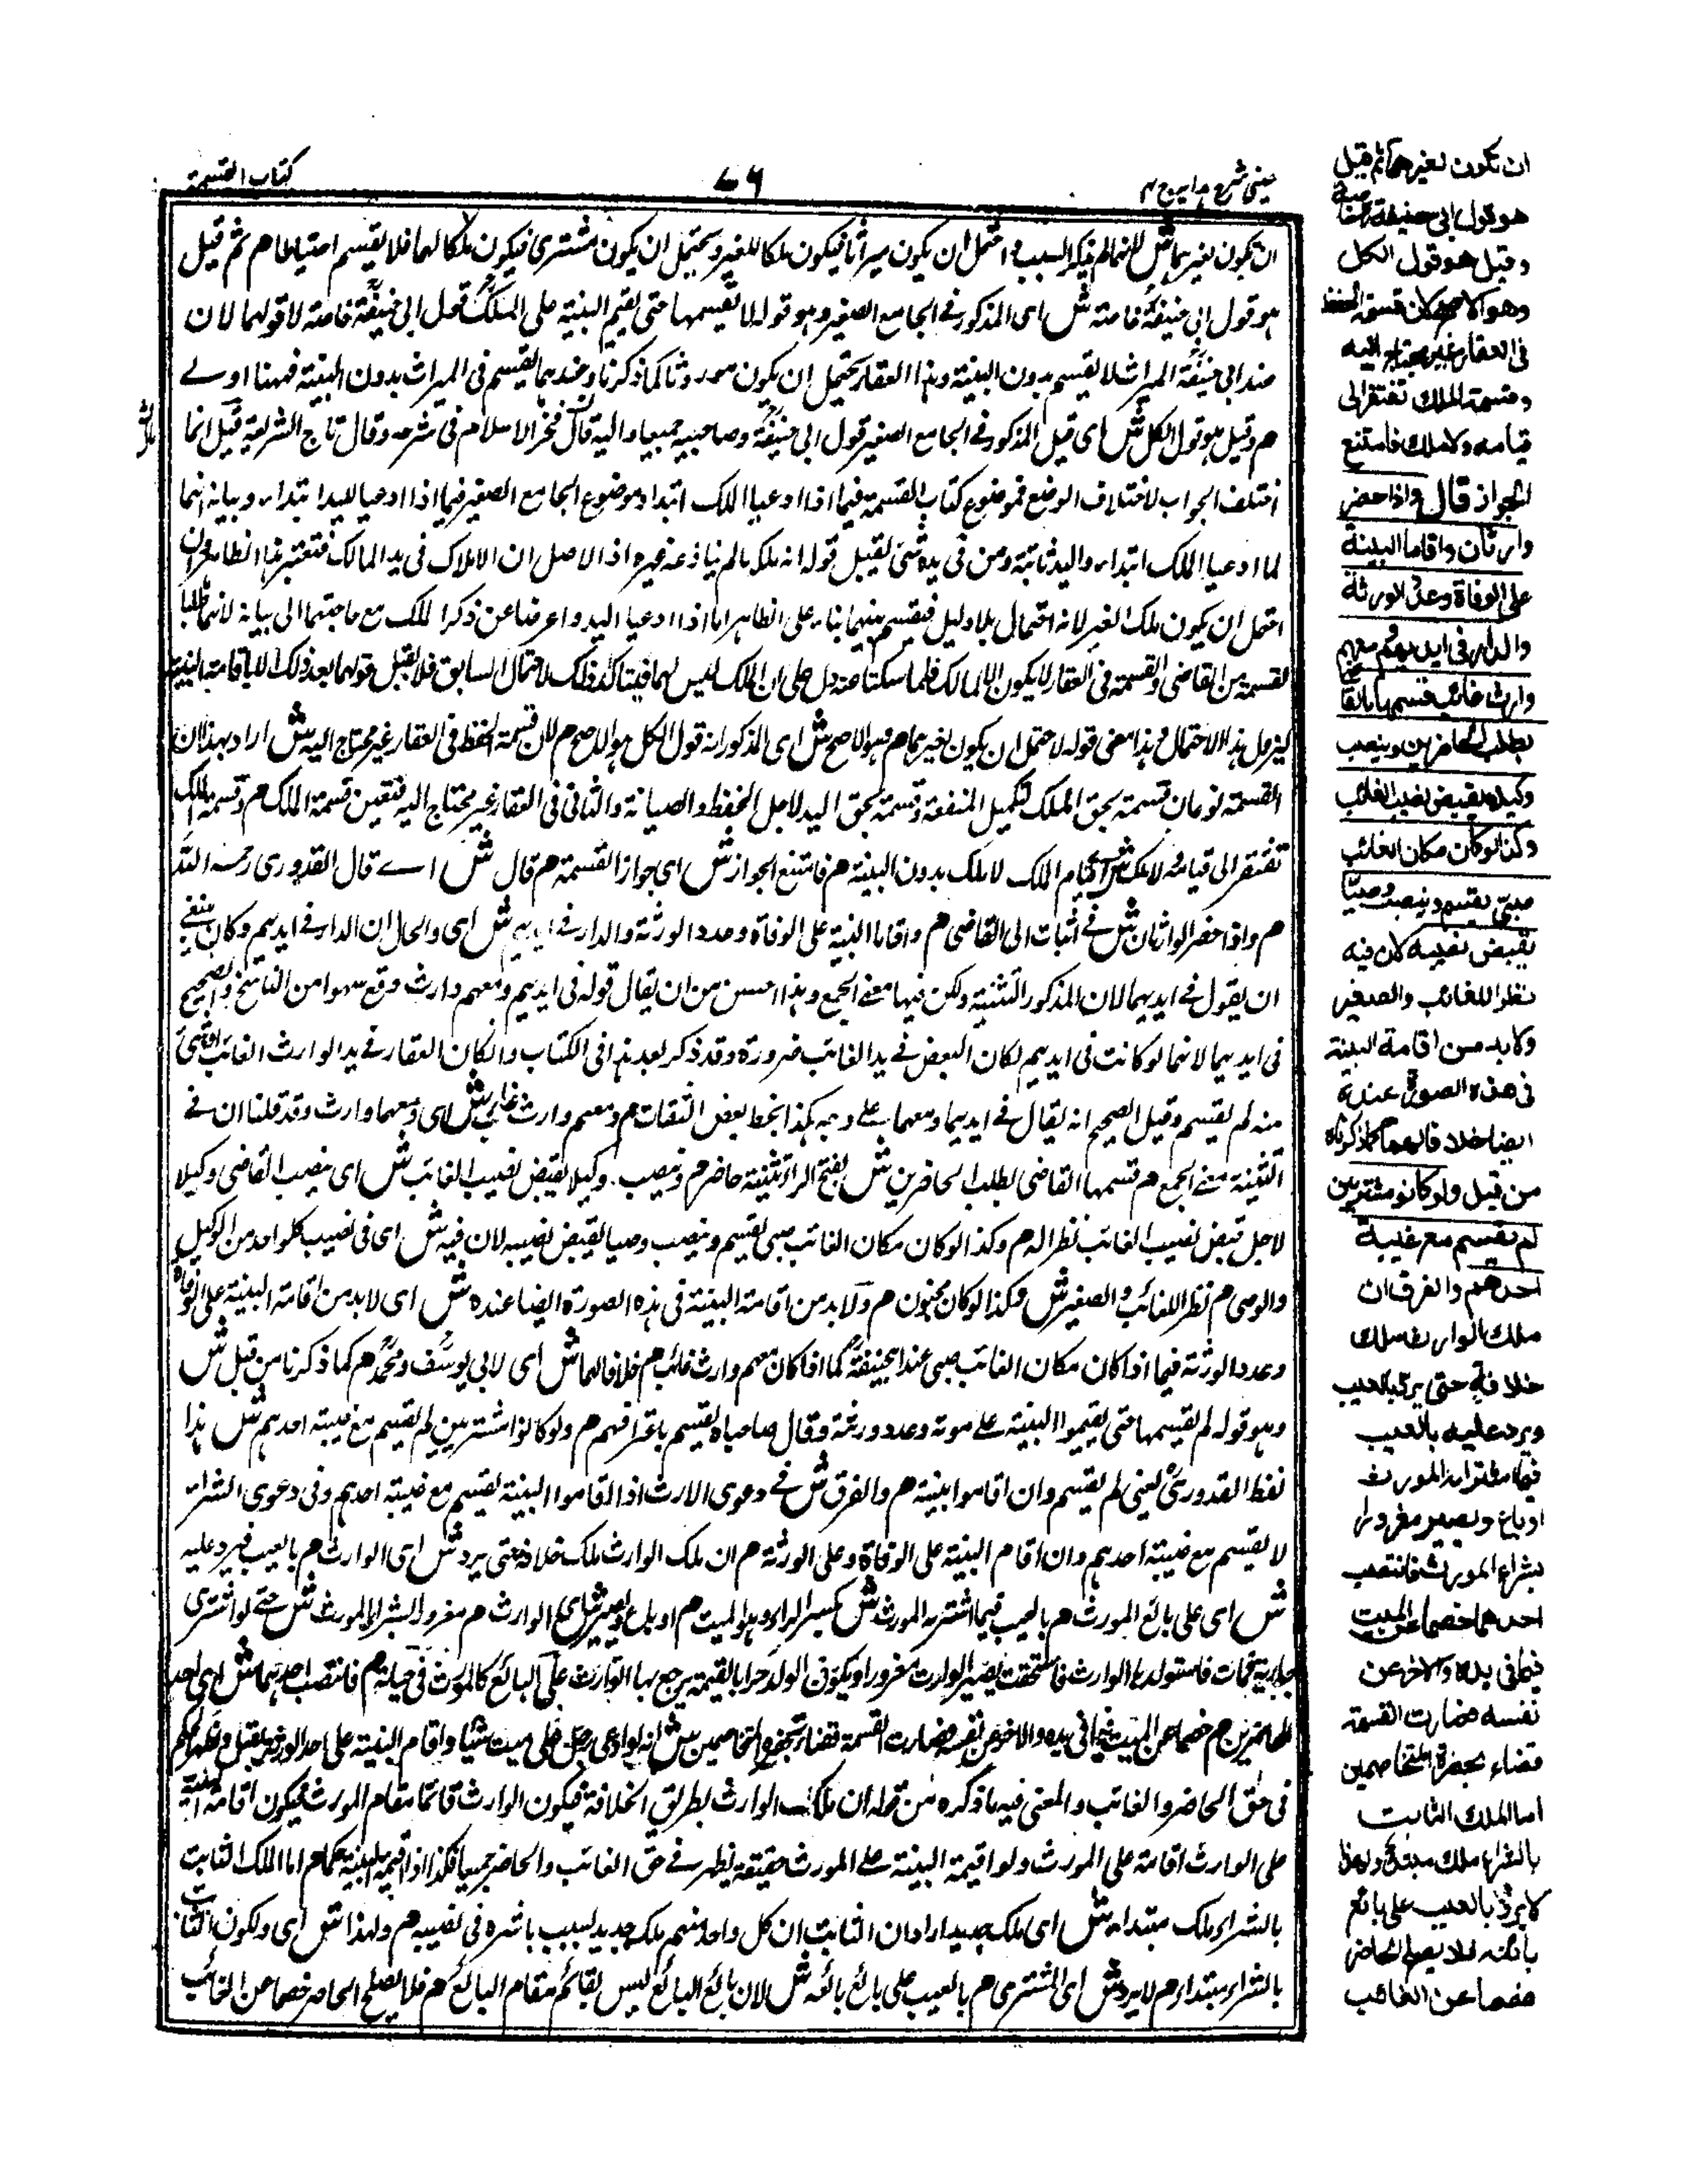 كتاب القسمة
٧٦
عينى شرح هدايه ج ٣
ان تكون لغيرهما ش لانهما لم يذكرا السبب احتمل ان يكون ميراثا فيكون ملكا للغير ويحتمل ان يكون مشترى فيكون ملكا لهما فلا يقسم احتياطا م ثم قيل
هو قول ابى حنيفة خاصة ش اى المذكور فى الجامع الصغير وهو قوله لا تقسيمها حتى يقيم البينة على الملك قول ابى حنيفة خاصة لا قولهما لان
عند ابى حنيفة الميراث لا يقسم بدون البينة وهذا العقار يحتمل ان يكون موروثا كما ذكرنا وعندهما يقسم فى الميراث بدون البينة فههنا اولے
م وقيل هو قول الكل ش اى قيل المذكور فى الجامع الصغير قول ابى حنيفة وصاحبيه جميعا واليه قال فخر الاسلام فى شرحه وقال تاج الشريعة قيل انما
اختلف الجواب لاختلاف الوضع فموضوع كتاب القسمة فيما اذا ادعيا الملك ابتداء وموضوع الجامع الصغير فيما اذا ادعيا اليد ابتداء وبيانه انهما
لما ادعيا الملك ابتداء واليد ثابتة ومن فى يده شئ يقبل قوله انه ملكه ما لم ينازعه غيره اذ الاصل ان الاملاك فى يد المالك فتعتبر هذا الظاهر وان
احتمل ان يكون ملك الغير لانه احتمال بلا دليل فيقسم بينهما بناء على الظاهر اما اذا ادعيا اليد واعرضا عن ذكر الملك مع حاجتهما الى بيانه لانهما طلبا
القسمة من القاضى والقسمة فى العقار لا يكون الا بالملك فلما سكتا عنه دل على ان الملك ليس لهما فيتأكد ذلك لاحتمال السابق فلا يقبل قولهما بعد ذلك الا باقامة البينة
ليزول هذا الاحتمال وهذا معنى قوله لاحتمل ان يكون لغيرهما م وهو الاصح ش اى المذكور انه قول الكل هو الاصح م لان قسمة الحفظ فى العقار غير محتاج اليه ش اراد بهذا ان
القسمة نوعان قسمة بحق الملك لتكميل المنفعة وقسمة بحق اليد لاجل الحفظ والصيانة والثانى فى العقار غير محتاج اليه فتعين قسمة الملك م وقسمة الملك
تفتقر الى قيامه ولا ملك ش اى قيام الملك لا ملك بدون البينة م فامتنع الجواز ش اى جواز القسمة م قال ش اے قال القدورى رحمه الله
م واذا حضر الوارثان ش فى اثبات الى القاضى م واقاما البينة على الوفاة وعدد الورثة والدار فے ايديهم ش اى والحال ان الدار فے ايديهم وكان ينبغے
ان يقول فے ايديهما لان المذكور التثنية ولكن فيها معنے الجمع وهذا احسن من ان يقال قوله فى ايديهم ومعهم وارث وقع سهوا من الناسخ والصحيح
فى ايديهما لانها لو كانت فى ايديهم لكان البعض فے يد الغائب ضرورة وقد ذكر بعد هذا فى الكتاب وان كان العقار فے يد الوارث الغائب او شئ
منه لم يقسم وقيل الصحيح انه يقال فے ايديهما ومعهما على وجه هكذا بخط بعض الثقات م ومعهم وارث غائب ش اى ومعهما وارث وقد قلنا ان فے
التثنية معنے الجمع م قسمها القاضى بطلب الحاضرين ش بفتح الراء تثنية حاضر م وينصب وكيلا يقبض نصيب الغائب ش اى ينصب القاضى وكيلا
لاجل قبض نصيب الغائب نظرا له م وكذا لو كان مكان الغائب صبى يقسم وينصب وصيا يقبض نصيبه لان فيه ش اى فى نصيب كل واحد من الوكيل
والوصى م نظرا للغائب والصغير ش وكذا لو كان مجنون م ولا بد من اقامة البينة فى هذه الصورة ايضا عنده ش اى لا بد من اقامة البينة على الوفاة
وعدد الورثة فيما اذا كان مكان الغائب صبى عند ابيحنيفة كما اذا كان معهم وارث غائب م خلافا لهما ش اى لابى يوسف ومحمد م كما ذكرنا من قبل ش
وهو قوله لم يقسمها حتى يقيموا البينة على موته وعدد ورثته وقال صاحباه يقسم باعترافهم م ولو كانوا مشترين لم يقسم مع غيبة احدهم ش هذا
لفظ القدورى يعنى لم يقسم وان اقاموا بينة م والفرق ش فے دعوى الارث اذا اقاموا البينة يقسم مع غيبة احدهم وفى دعوى الشراء
لا يقسم مع غيبة احدهم وان اقام البينة على الوفاة وعلى الورثة م ان ملك الوارث ملك خلافة حتى يرد ش اى الوارث م بالعيب فيرد عليه
ش اى على بائع المورث م بالعيب فيما اشتراه المورث ش بكسر الراء وهو الميت م او باع ويصير ش اى الوارث م مغرورا بشراء المورث ش حتے لو اشترى
جارية فمات فاستولدها الوارث فاستحقت يصير الوارث مغرورا ويكون الولد حرا بالقيمة يرجع بها الوارث على البائع كالمورث فى حياته م فانتصب احدهما ش اى احد
الحاضرين م خصما عن الميت فيما فى يده والاخر عن نفسه فصارت القسمة قضاء بحضرة المتخاصمين ش انه لو ادعى رجل على ميت شيئا واقام البينة على احد الورثة يقبل ويظهر الحكم
فى حق الحاضر والغائب والمعنى فيه ما ذكره من قوله ان ملك الوارث بطريق الخلافة فيكون الوارث قائما مقام المورث فيكون اقامة البينة
على الوارث اقامة على المورث ولو اقيمة البينة على المورث حقيقة يظهر فے حق الغائب والحاضر جميعا فكذا اذا اقيمة البينة م اما الملك الثابت
بالشراء ملك مبتدأ ش اى ملك جديد اراد ان الثابت ان كل واحد منهم ملك جديد بسبب باشره فى نصيبه م ولهذا ش اى ولكون الثابت
بالشراء مبتدأ م لا يرد ش اى المشترى م بالعيب على بائع بائعه ش لان بائع البائع ليس بقائم مقام البائع م فلا يصلح الحاضر خصما عن الغائب
ان تكون لغيرهما ثم قيل
هو قول ابى حنيفة خاصة
وقيل هو قول الكل
وهو الاصح لان قسمة الحفظ
فى العقار غير محتاج اليه
وقسمة الملك تفتقر الى
قيامه ولا ملك فامتنع
الجواز قال واذا حضر
وارثان واقاما البينة
على الوفاة وعدد الورثة
والدار فى ايديهم ومعهم
وارث غائب قسمها القاضى
بطلب الحاضرين وينصب
وكيلا يقبض نصيب الغائب
وكذا لو كان مكان الغائب
صبى يقسم وينصب وصيا
يقبض نصيبه لان فيه
نظرا للغائب والصغير
ولا بد من اقامة البينة
فى هذه الصورة عنده
ايضا خلافا لهما كما ذكرناه
من قبل ولو كانو مشتريين
لم يقسم مع غيبة
احدهم والفرق ان
ملك الوارث ملك
خلافة حتى يرد بالعيب
ويرد عليه بالعيب
فيما اشتراه المورث
او باع ويصير مغرورا
بشراء المورث فانتصب
احدهما خصما عن الميت
فيما فى يده والاخر عن
نفسه فصارت القسمة
قضاء بحضرة المتخاصمين
اما الملك الثابت
بالشراء ملك مبتدأ ولهذا
لا يرد بالعيب على بائع
بائعه فلا يصلح الحاضر
خصما عن الغائب